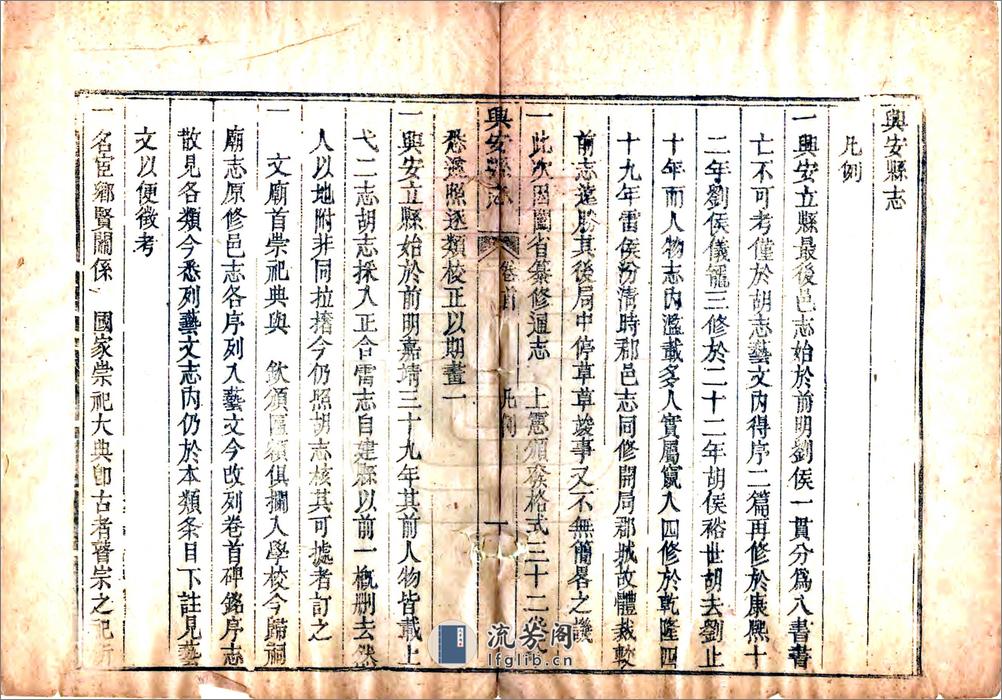 興安縣志
凡例
一興安立縣最後邑志始於前明劉侯一貫分爲八書書
亡不可考僅於胡志藝文內得序二篇再修於康熙十
二年劉侯儀龍三修於二十二年胡侯裕世胡去劉止
十年而人物志內濫載多人實屬竄入四修於乾隆四
十九年雷侯汾淸時郡邑志同修開局郡城故體裁較
前志遠勝其後局中停草草竣事又不無簡畧之譏
一此次因闔省纂修通志 上憲頒發格式三十二
興安縣志
卷首
凡例
一
悉遵照逐類校正以期畫一
一興安立縣始於前明嘉靖三十九年其前人物皆載上
弋二志胡志採入正合雷志自建縣以前一槪刪去然
人以地附非同拉撦今仍照胡志核其可據者訂之
一 文廟首崇祀典與 欽頒匾額俱攔入學校今歸祠
廟志原修邑志各序列入藝文今改列卷首碑銘序志
散見各類今悉列藝文志內仍於本類条目下註見藝
文以便徵考
一名宦鄉賢關係 國家崇祀大典卽古者瞽宗之祀所
流芳阁
lfglib.cn